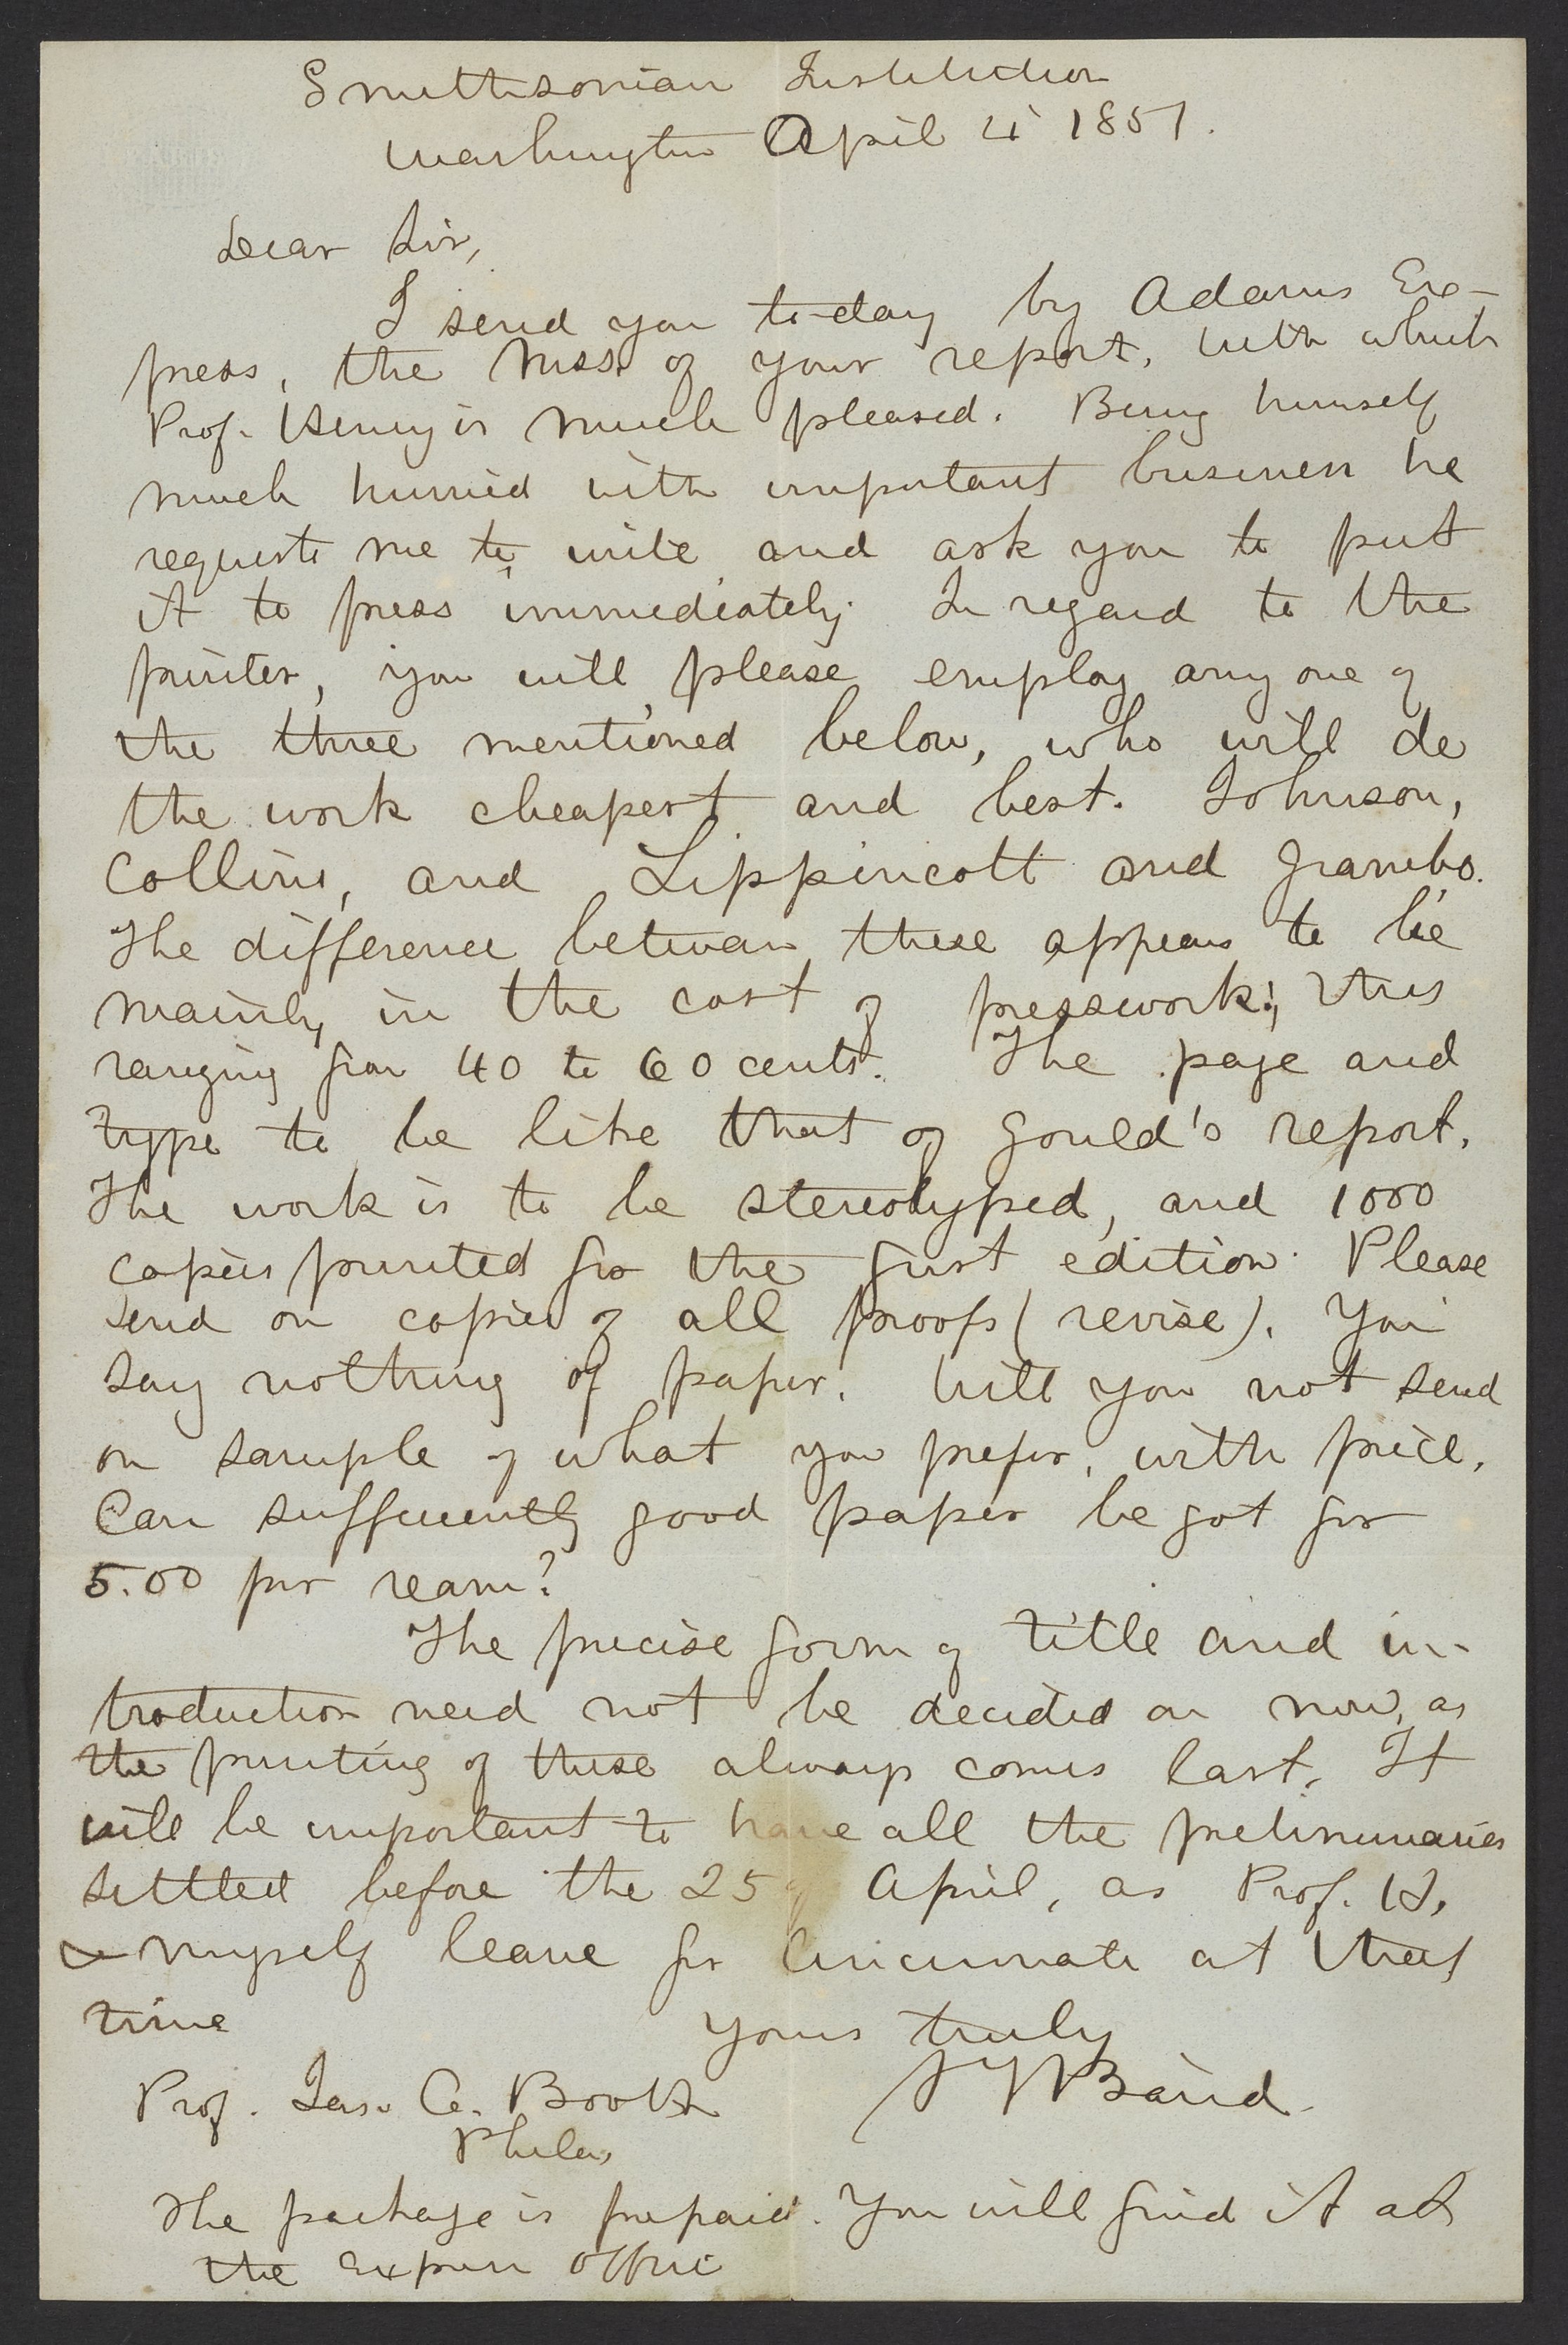 Smithsonian Institution
Washington April 4 1851.
Dear Sir,
I send you to-day by Adams Ex-
press, the Mss. of your report, with which
Prof. Henry is much pleased. Being himself
much hurried with important business he
requests me to write and ask you to put
it to press immediately. In regard to the
printer, you will please employ any one of
the three mentioned below, who will do
the work cheapest and best. Johnson,
Collins, and Lippincott and Grambo.
The difference between these appears to be
mainly in the cost of presswork; this
ranging from 40 to 60 cents. The page and
type to be like that of Gould's report.
The work is to be stereotyped, and 1000
copies printed for the first edition. Please
send on copies of all proofs (revise). You
say nothing of paper. Will you not send
on sample of what you prefer, with price.
Can sufficiently good paper be got for
5.00 per ream?
The precise form of title and in-
troduction need not be decided on now, as
the printing of these always comes last. It
will be important to have all the preliminaries
settled before the 25 of April, as Prof. H.
& myself leave for Cincinnati at that
time
Yours truly
S F Baird.
Prof. Jas. C. Booth
Phila.
The package is prepaid. You will find it at
the express office